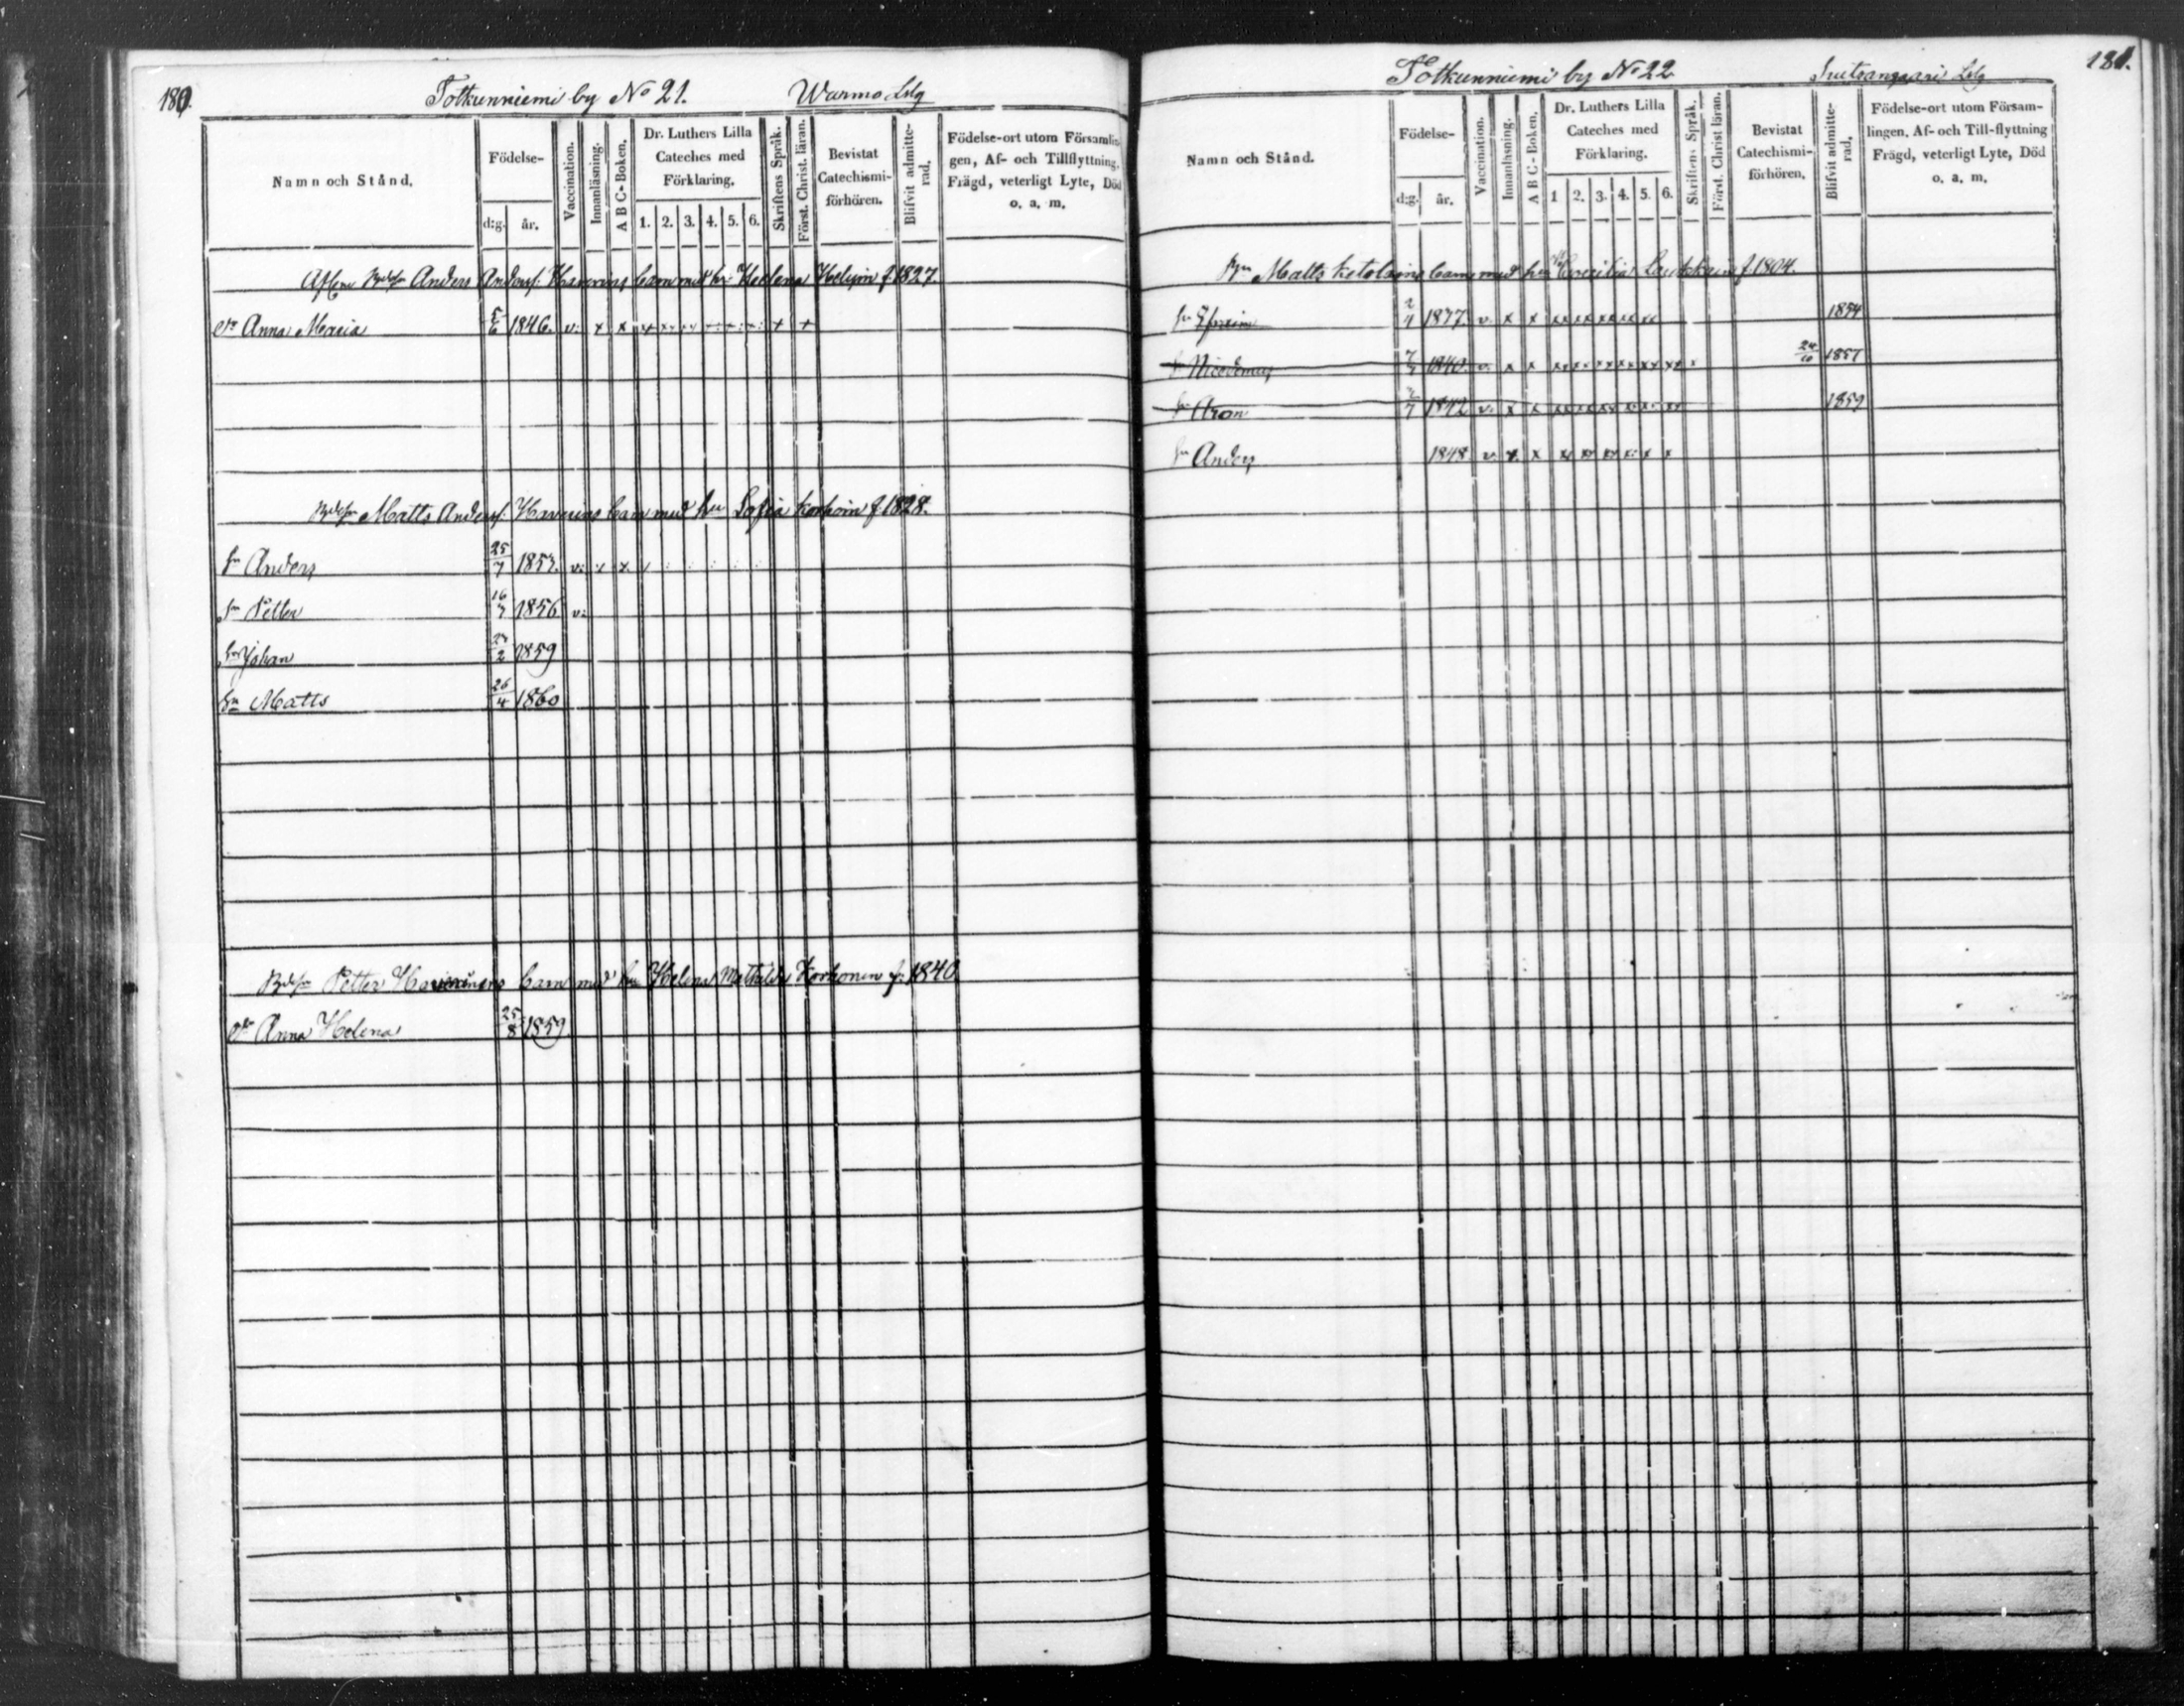 180.
Totkunniemi by No 21. Warmo Lslg
Namn och Stånd.
Födelse-
d:g. år.
Vaccination.
Innanläsning.
A B C-Boken.
Dr. Luthers Lilla Cateches med Förklaring.
1. 2. 3. 4. 5. 6.
Skriftens Språk.
Först. Christ. läran.
Bevistat Catechismi-förhören.
Blifvit admitte-rad.
Födelse-ort utom Församlin-gen, Af- och Tillflyttning, Frägd, veterligt Lyte, Död o. a. m.
Anders Anders: Haverins barn med hu Helena f 1827.
dr Anna Maria 5/6 1846. v. x x
Matts Anders: Haverins barn med hu Sofia Korhoin f 1828.
sn Anders 25/7 1853. v.
sn Petter 16/7 1856 v.
sn Johan 1859
sn Matts 26/4 1860
Petter barn med hu Helena Mathilda Korhonen f: 1840
dr Anna Helena 25/8 1859
181.
Totkunniemi by No 22 Lslg
Namn och Stånd.
Födelse-
d:g. år.
Vaccination.
Innanläsning.
A B C-Boken.
Dr. Luthers Lilla Cateches med Förklaring.
1 2. 3. 4. 5. 6.
Skriftens Språk.
Först. Christ läran.
Bevistat Catechismi-förhören.
Blifvit admitte-rad.
Födelse-ort utom Försam-lingen, Af- och Till-flyttning Frägd, veterligt Lyte, Död o. a. m.
Matts Ketolains barn med hu Cecilia f 1804.
sn Efraim 1837. v. x x 1854
sn Nicodemus 1840. v. x x 24/10 1857
sn Aron 1842 v. x x 1859
sn Anders 1848 v. x x